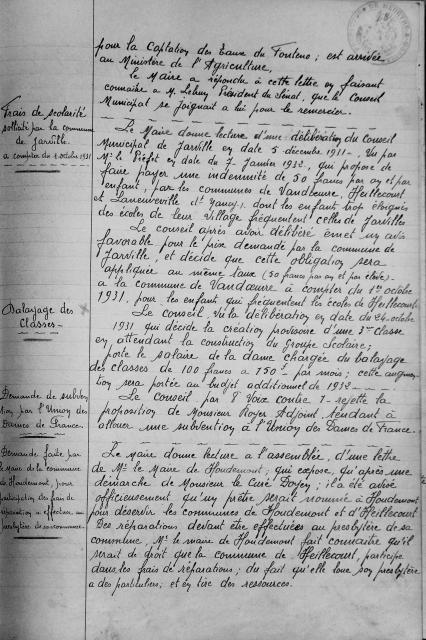 pour la Captation des Eaux du Fonteno ; est arrivée
au Ministère de l'Agriculture,
le Maire a répondu à cette lettre en faisant
connaître à M. Lebrun, Président du Sénat, que le Conseil
Municipal se joignait à lui pour le remercier.
Frais de scolarité
sollicité par la commune
de Jarville.
a compter du 1 octobre 1931
Le Maire donne lecture d'une délibération du Conseil
Municipal de Jarville en date du 5 décembre 1911 - Vu par
Mr le Préfet en date du 7 Janvier 1932, qui propose de
faire payer une indemnité de 50 francs par an et par
enfant, par les communes de Vandœuvre, Heillecourt
et Laneuveville dt Nancy, dont les enfants trop éloignés
des écoles de leur village fréquentent celles de Jarville
Le conseil après avoir délibéré émet un avis
favorable pour le prix demandé par la commune de
Jarville, et décide que cette obligation sera
appliquée au même taux (50 francs par an et par élève) -
a la commune de Vandœuvre à compter du 1er octobre
1931, pour les enfants qui fréquentent les écoles de Heillecourt.
Balayage des
Classes -
Le Conseil. Vu la délibération en date du 24 octobre
1931 qui décide la création provisoire d'une 3me classe
en attendant la construction du Groupe Scolaire ;
porte le salaire de la dame chargée du balayage
des classes de 100 francs a 150 f par mois ; cette augmen
tion sera portée au budget additionnel de 1932 -
Demande de subven
tion par l'Union des
Dames de France.
Le Conseil par 8 Voix contre 1 - rejette la
proposition de Monsieur Royer Adjoint, tendant à
allouer une subvention à l'Union des Dames de France.
Demande faite par
le Maire de la commune
de Houdemont, pour
participation des frais de
réparation a effectuer au
presbytère de sa commune.
Le Maire donne lecture a l'assemblée, d'une lettre
de Mr le Maire de Houdemont, qui expose, qu'après une
démarche de Monsieur le Curé Doyen ; il a été avisé
officieusement qu'un prêtre serait nommé à Houdemont
pour desservir les communes de Houdemont et d'Heillecourt
Des réparations devant être effectuées au presbytère de sa
commune, Mr le maire de Houdemont fait connaître qu'il
serait de droit que la commune de Heillecourt, participe
dans les frais de réparations ; du fait qu'elle loue son presbytère
a des particuliers ; et en tire des ressources.